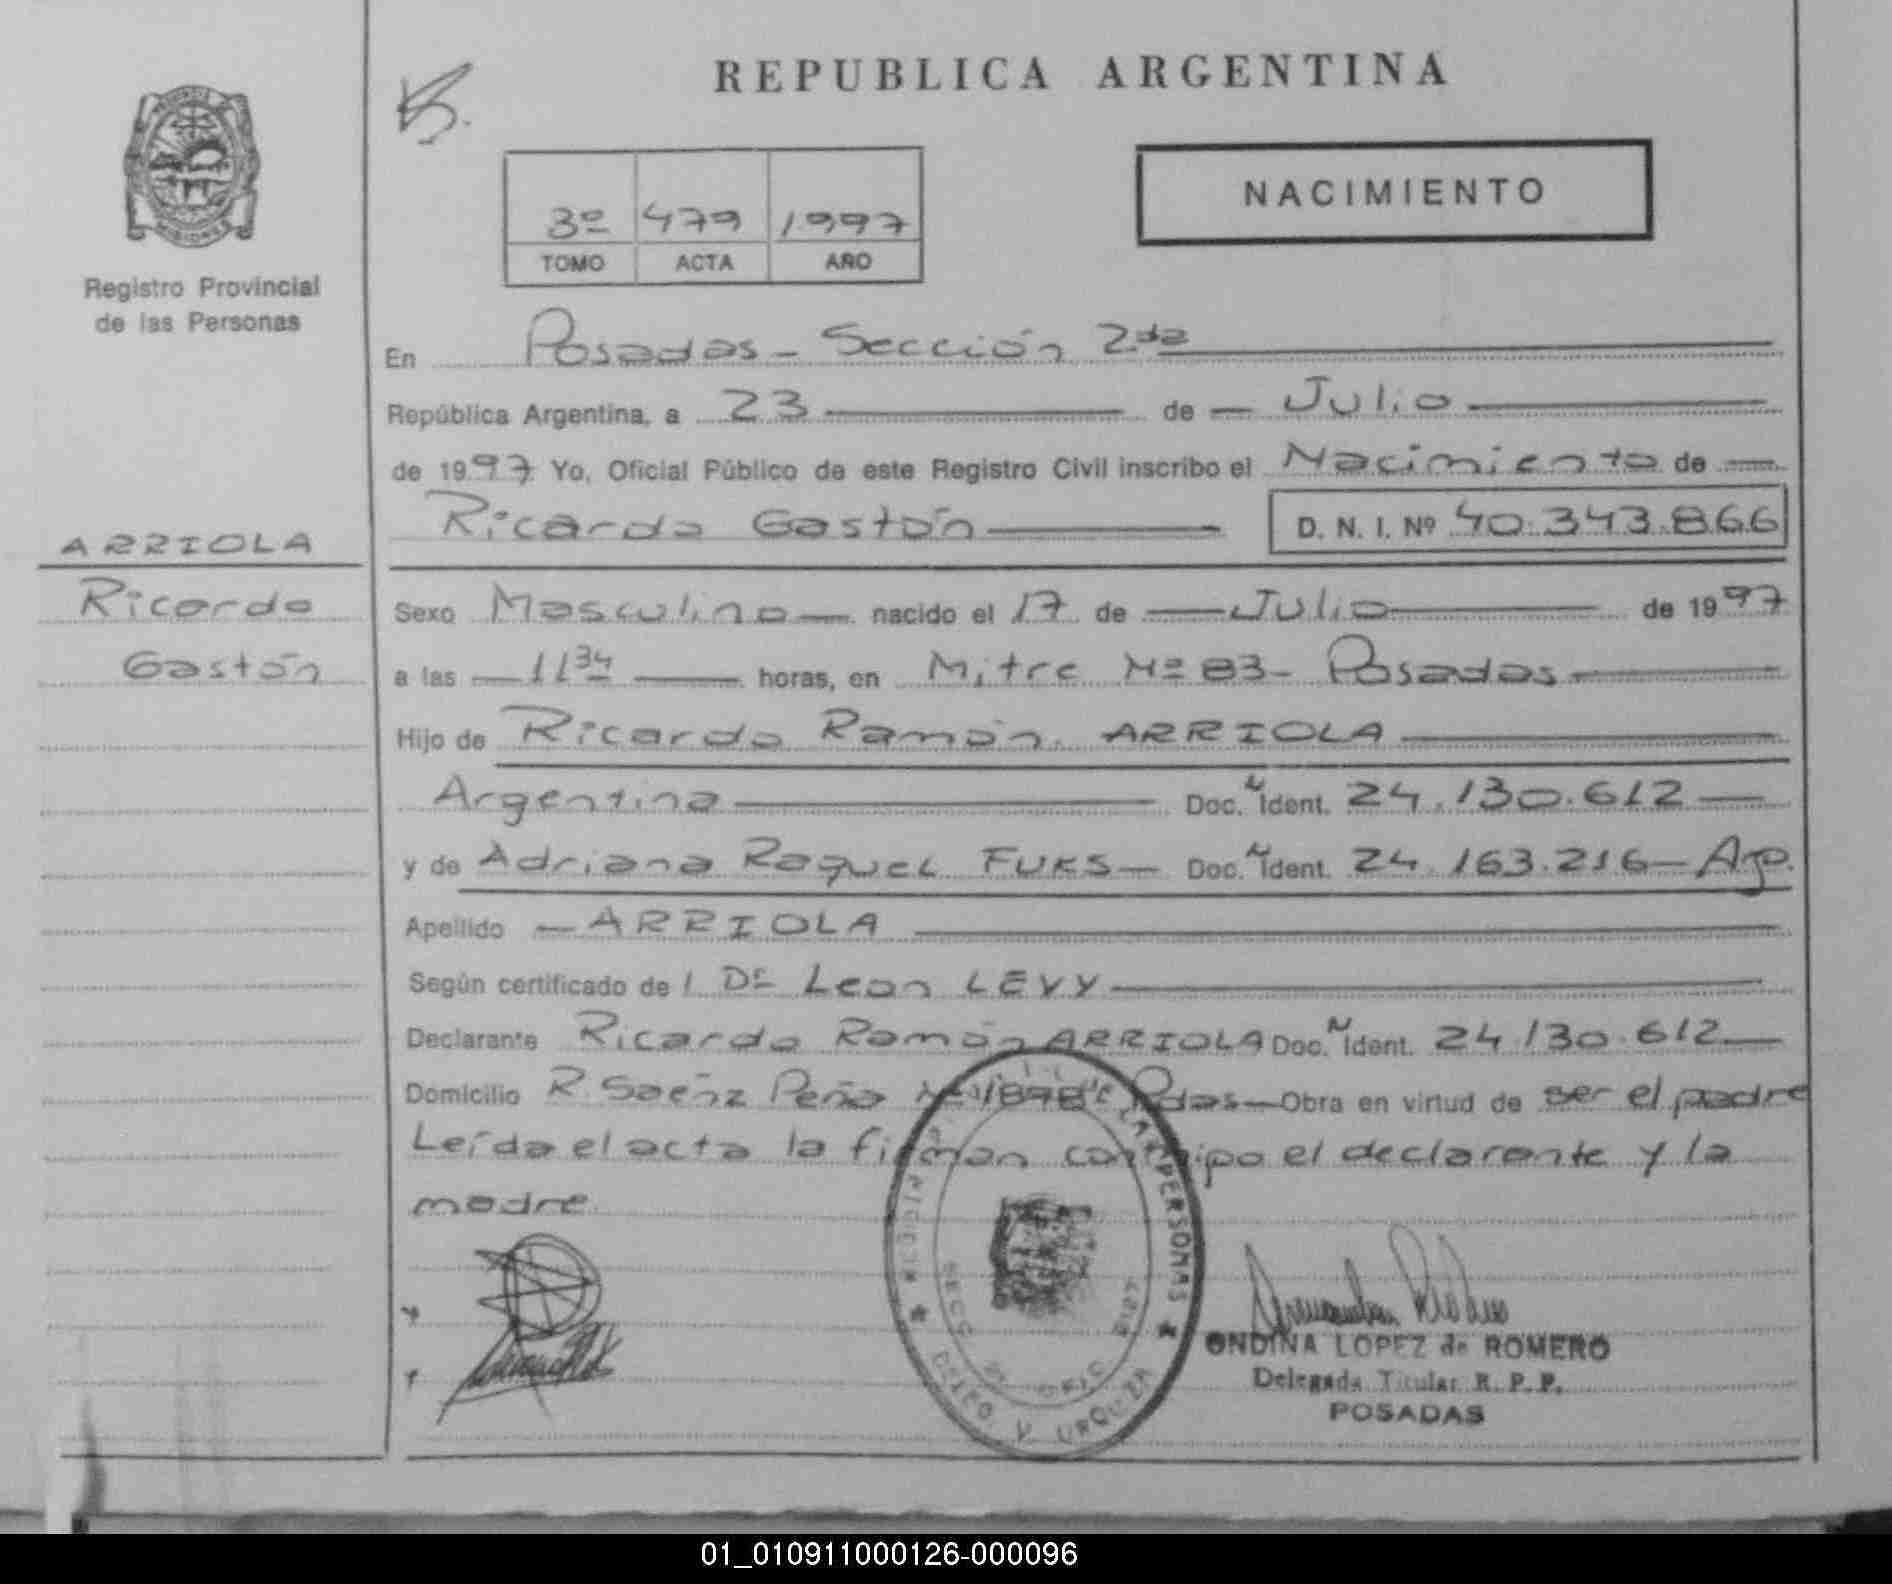 REPUBLICA ARGENTINA
3º 479 1997
TOMO ACTA AÑO
NACIMIENTO
MISIONES
Registro Provincial
de las Personas
En Posadas - Sección 2da
República Argentina, a 23 de Julio
de 1997 Yo, Oficial Público de este Registro Civil inscribo el Nacimiento de
Ricardo Gastón D. N. I. Nº 40.343.866
ARRIOLA
Ricardo
Gastón
Sexo Masculino nacido el 17 de Julio de 1997
a las 11 34 horas, en Mitre Nº 83 - Posadas
Hijo de Ricardo Ramón ARRIOLA
Argentina Doc. N Ident. 24.130.612
y de Adriana Raquel FUKS Doc. N Ident. 24.163.216 - Arg.
Apellido ARRIOLA
Según certificado de l Dr Leon LEVY
Declarante Ricardo Ramón ARRIOLA Doc. N Ident. 24.130.612
Domicilio R. Saénz Peña Nº 1898 Pdas - Obra en virtud de ser el padre
Leída el acta la firman conmigo el declarante y la
madre
PERSONAS
SECC OFIC
DCTRO V. URQUIZA
ONDINA LOPEZ de ROMERO
Delegada Titular R. P. P.
POSADAS
01_010911000126-000096